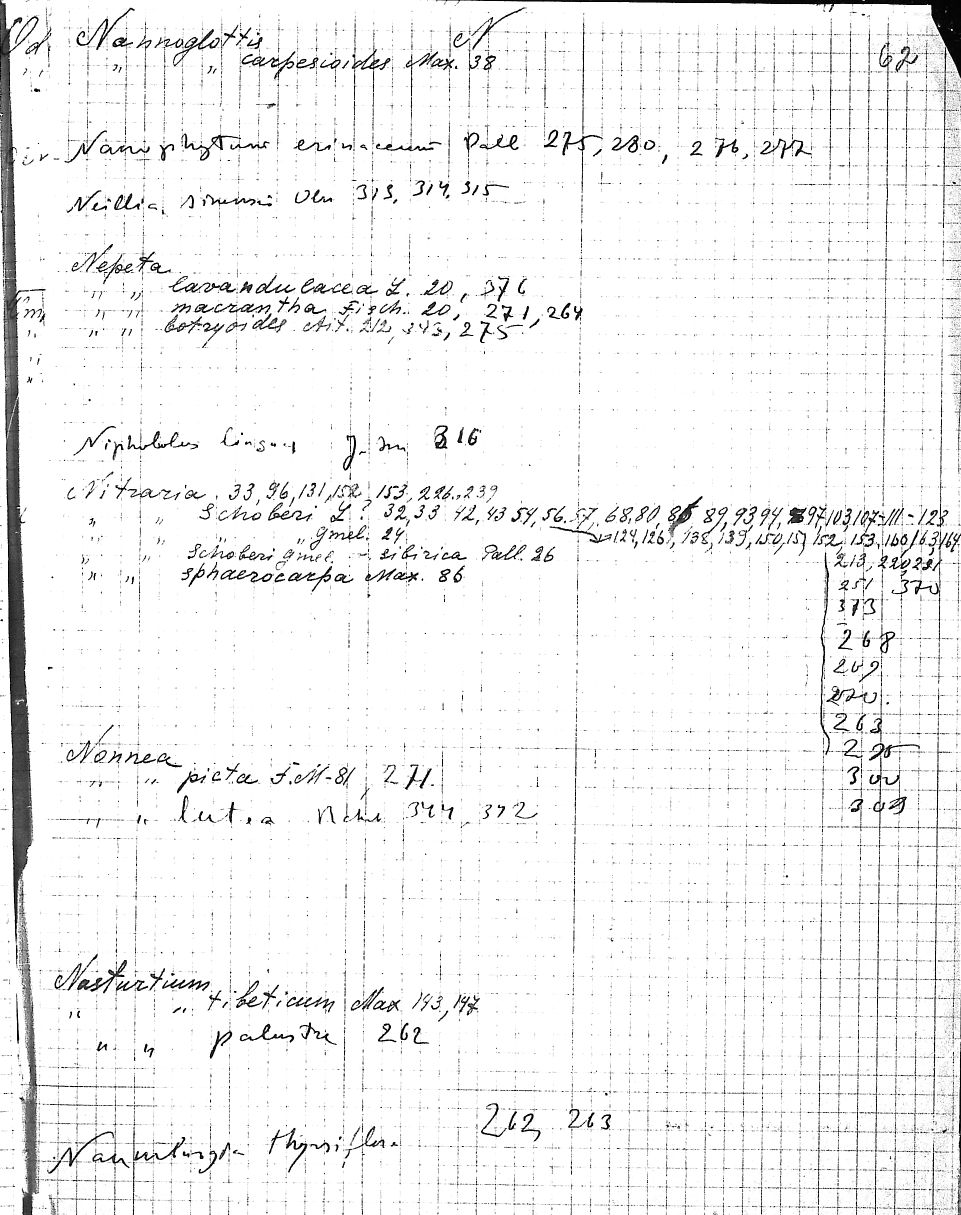 N
62
Od. Nannoglottis
" " carpesioides Max. 38
Nanophytum erinaceum Pall 275, 280, 276, 277
Neillia sinensis Oliv 313, 314, 315
Nepeta
" " lavandulacea L. 20, 376
" " macrantha Fisch. 20, 271, 264
" " botryoides Ait. 212, 343, 275
Niphobolus lingua J. Sm 316
Nitraria. 33, 96, 131, 152, 153, 226, 239
" " Schoberi L? 32, 33 42, 43 54, 56, 57, 68, 80, 86 89, 93, 94, 97, 103, 107-111-123
" " " gmel. 24 124, 126, 138, 139, 150, 151 152, 153, 160, 163, 164
" " Schoberi gmel - sibirica Pall. 26 213, 220, 221
" " sphaerocarpa Max. 86 251 370
373
268
269
270.
263
295
300
309
Nonnea
" " picta F.M-81, 271.
" " lutea 344, 342
Nasturtium
" " tibeticum Max 143, 147
" " palustre 262
Naumburgia thyrsiflora 262, 263